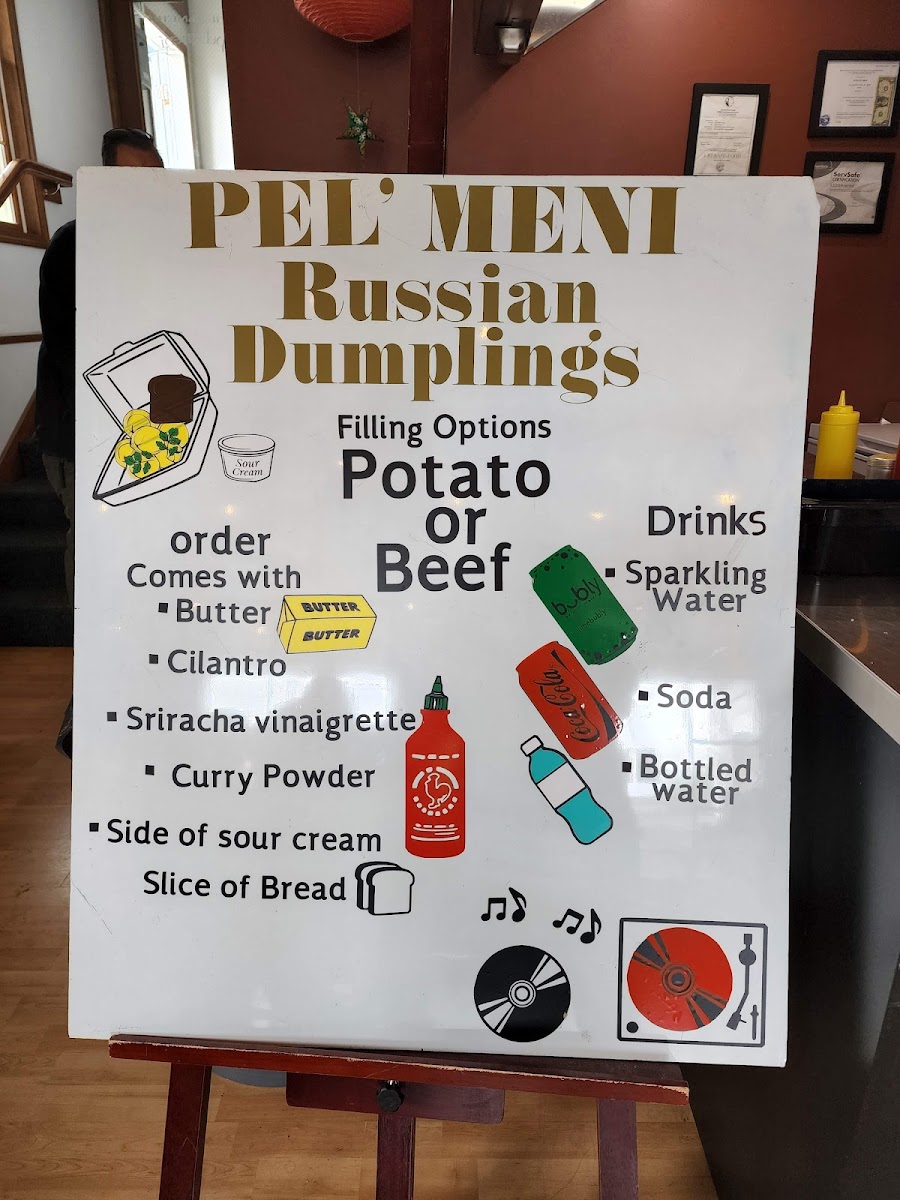 PEL' MENI
Russian
Dumplings
Sour
Cream
Filling Options
Potato
or
Beef
order
Comes with
▪ Butter
BUTTER
BUTTER
▪ Cilantro
▪ Sriracha vinaigrette
▪ Curry Powder
▪ Side of sour cream
Slice of Bread
Drinks
▪ Sparkling
Water
bubly
▪ Soda
Coca-Cola
▪ Bottled
water
ServSafe
CERTIFICATION